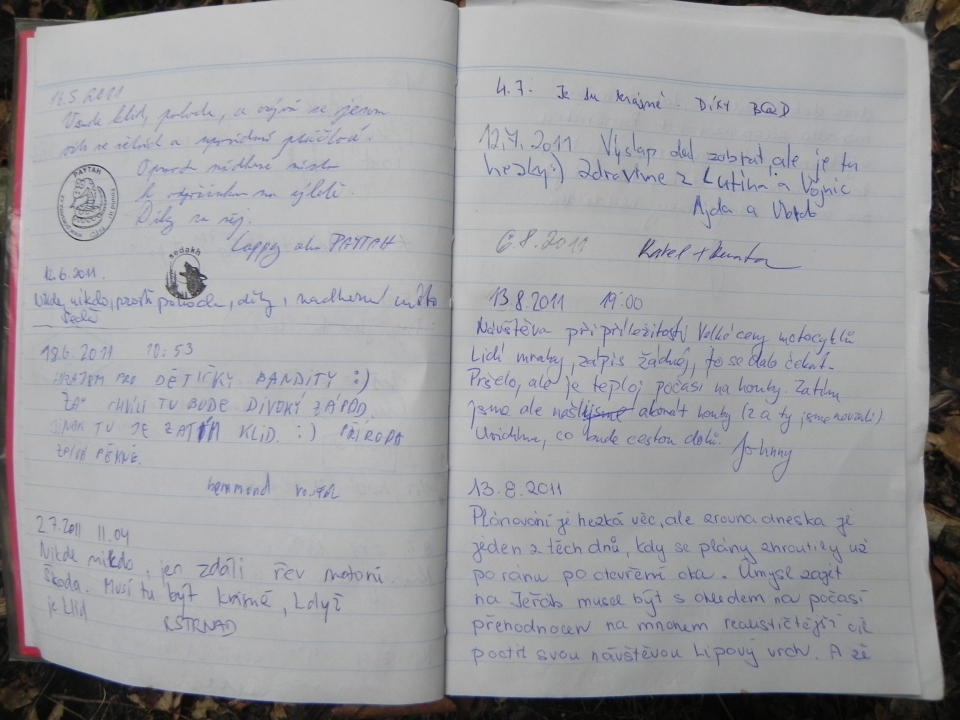 16.5 2011
Všude klid, pohoda, a ozývá se jenom
Opravdu nádherné místo
k odpočinku na výletě.
Díky za něj.
Lappy aka PATTAH
PATTAH
sedakh
12.6.2011.
nikde nikdo, prostě pohoda, díky, nádherné místo
18.6. 2011 10:53
PRO DĚTIČKY BANDITY :)
ZA CHVÍLI TU BUDE DIVOKÝ ZÁPAD.
JINAK TU JE ZATÍM KLID. :) PŘÍRODA
PĚKNĚ.
2.7.2011 11.04
Nikde nikdo, jen zdáli řev motorů.
Škoda. Musí tu být krásně, když
je klid
RSTRNAD
4.7. Je tu krásně. DÍKY
12.7.2011 Výšlap dal zabrat, ale je tu
hezky :) Zdravíme z Lutína a Vojnic
Ajda a
6.8.2011
13.8.2011 19:00
Návštěva při příležitosti Velké ceny motocyklů
Lidí mraky, zápis žádný, to se dalo čekat.
Pršelo, ale je teplo, počasí na houby. Zatím
jsme ale našli akorát houby (2 a ty jsme nevzali)
Uvidíme, co bude cestou dolů. Johnny
13.8.2011
Plánování je hezká věc, ale zrovna dneska je
jeden z těch dnů, kdy se plány zhroutily už
po ránu po otevření oka. Úmysl zajít
na Jeřáb musel být s ohledem na počasí
přehodnocen na mnohem realističtější cíl
poctít svou návštěvou Lipový vrch. A že